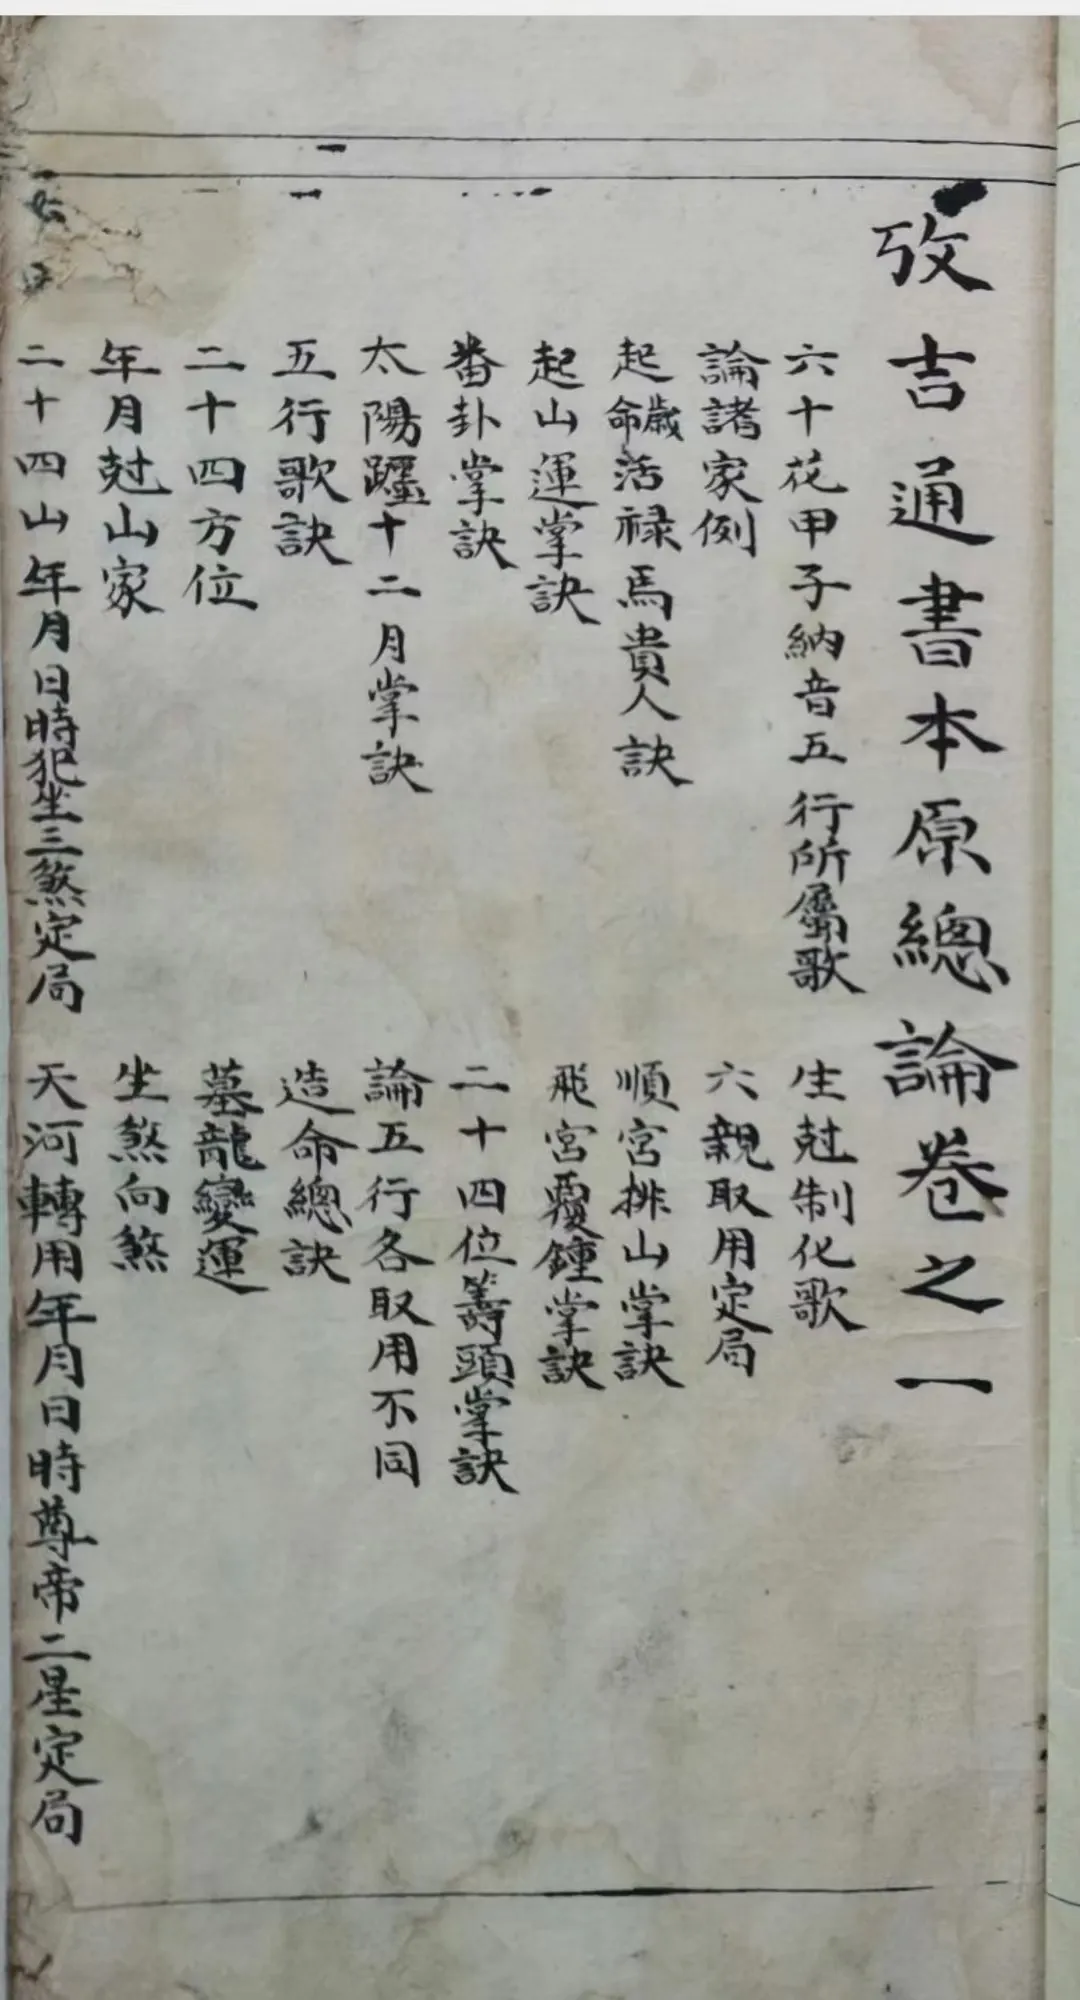 攷吉通書本原總論卷之一
六十花甲子納音五行所屬歌
生尅制化歌
論諸家例
六親取用定局
起歲命活祿馬貴人訣
順宮排山掌訣
起山運掌訣
飛宮覆鐘掌訣
番卦掌訣
二十四位籌頭掌訣
太陽躔十二月掌訣
論五行各取用不同
五行歌訣
造命總訣
二十四方位
墓龍變運
年月尅山家
坐煞向煞
二十四山年月日時犯坐三煞定局
天河轉用年月日時尊帝二星定局